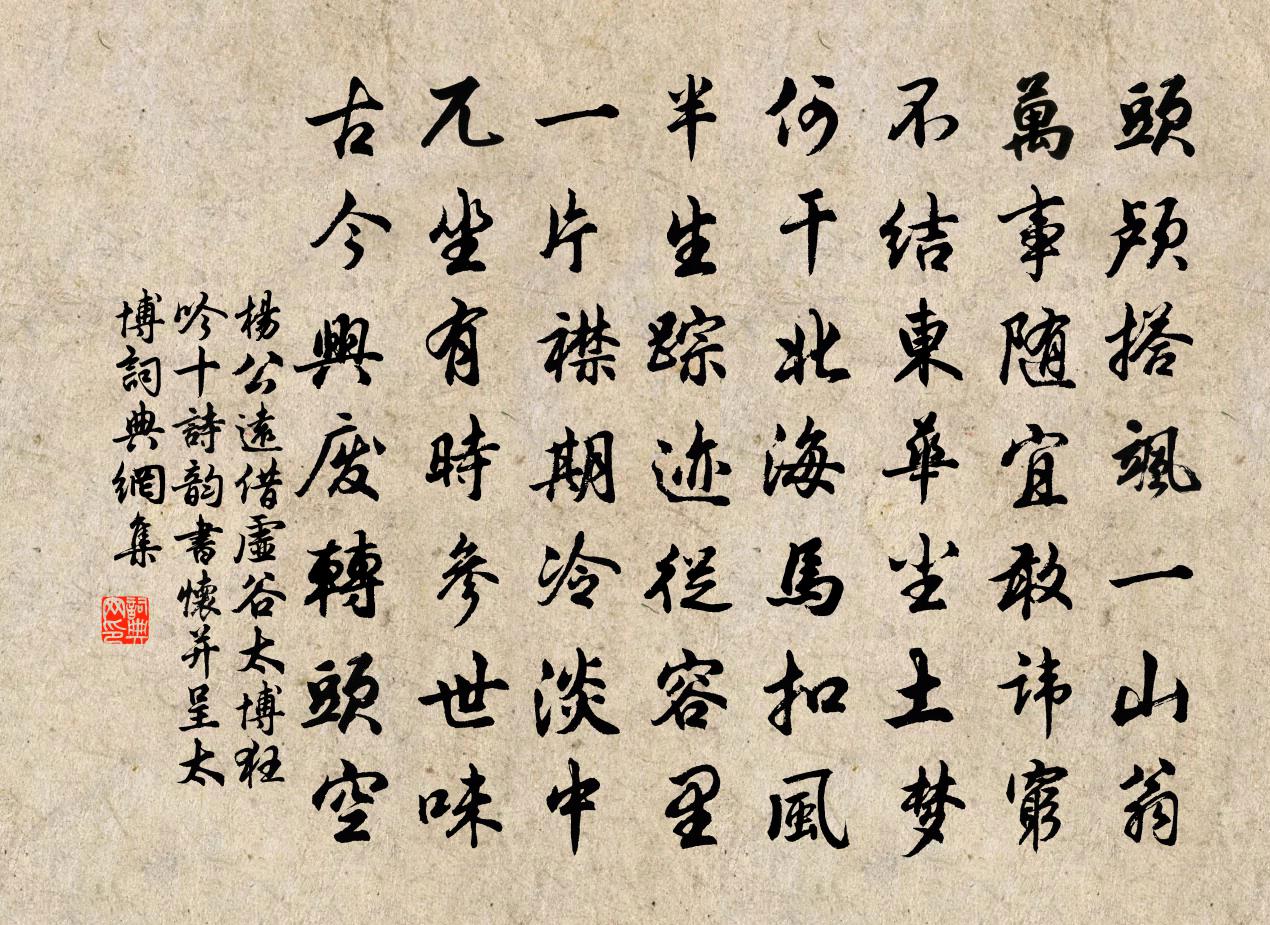 頭颅搭颯一山翁
萬事随宜敢讳窮
不结東華尘土梦
何干北海馬扣風
半生踪迹從容里
一片襟期冷淡中
兀坐有時參世味
古今興废轉頭空
楊公遠借虛谷太博狂
吟十詩韵書懷并呈太
博詞典網集
詞典网印